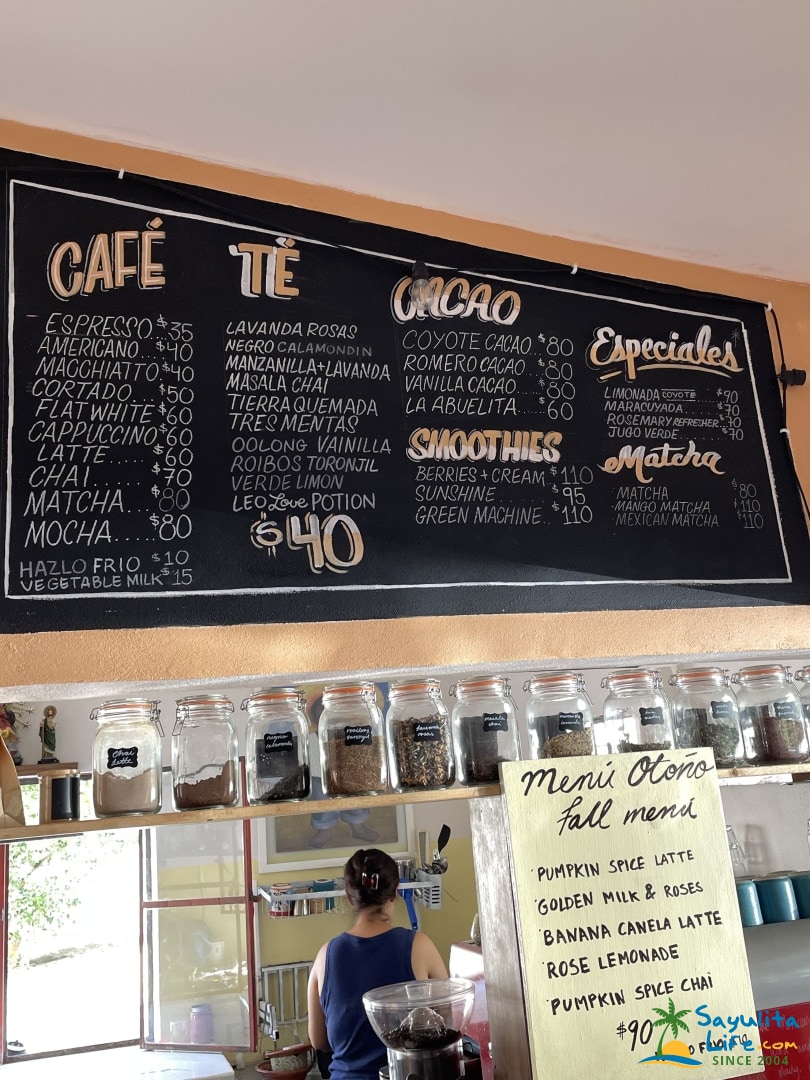 CAFÉ
ESPRESSO...$35
AMERICANO...$40
MACCHIATTO...$40
CORTADO...$50
FLAT WHITE $60
CAPPUCCINO $60
LATTE.....$60
CHAI.....$70
MATCHA....$80
MOCHA.....$80
HAZLO FRIO $10
VEGETABLE MILK $15
TË
LAVANDA ROSAS
NEGRO CALAMONDIN
MANZANILLA + LAVANDA
MASALA CHAI
TIERRA QUEMADA
TRES MENTAS
OOLONG VAINILLA
ROIBOS TORONJIL
VERDE LIMON
LEO Love POTION
$40
CACAO
COYOTE CACAO..$80
ROMERO CACAO..$80
VANILLA CACAO..$80
LA ABUELITA...$60
SMOOTHIES
BERRIES + CREAM $110
SUNSHINE.......$95
GREEN MACHINE..$110
Especiales
LIMONADA COYOTE..$90
MARACUYADA....$70
ROSEMARY REFRESHER $70
JUGO VERDE...$70
Matcha
MATCHA $80
MANGO MATCHA $110
MEXICAN MATCHA $110
Chai Latte
negro calamondin
rooibos toronjil
lavanda rosas
masala chai
Menú Otoño
Fall menú
·PUMPKIN SPICE LATTE
·GOLDEN MILK & ROSES
·BANANA CANELA LATTE
·ROSE LEMONADE
·PUMPKIN SPICE CHAI
$90
Sayulita
Life.com
SINCE 2004